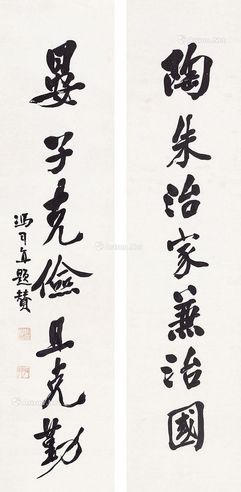 陶朱治家兼治國
晏子克儉且克勤
馮可直題贊